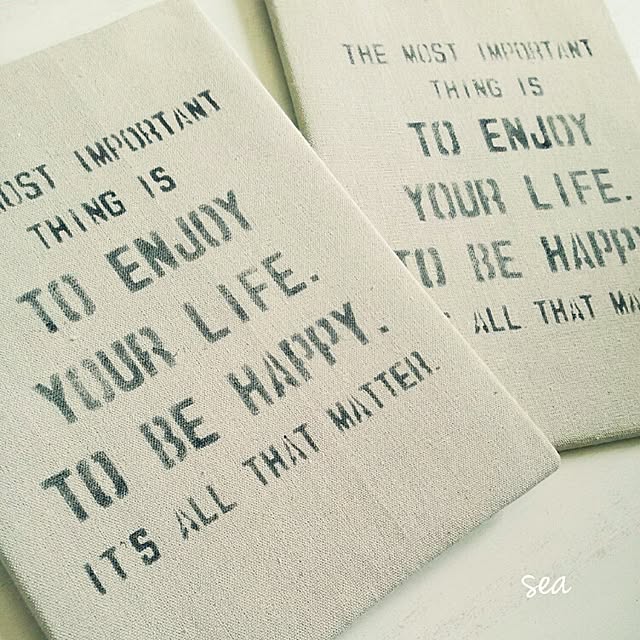 MOST IMPORTANT
THING IS
TO ENJOY
YOUR LIFE.
TO BE HAPPY.
IT'S ALL THAT MATTER.
THE MOST IMPORTANT
THING IS
TO ENJOY
YOUR LIFE.
TO BE HAPPY
ALL THAT MA
sea